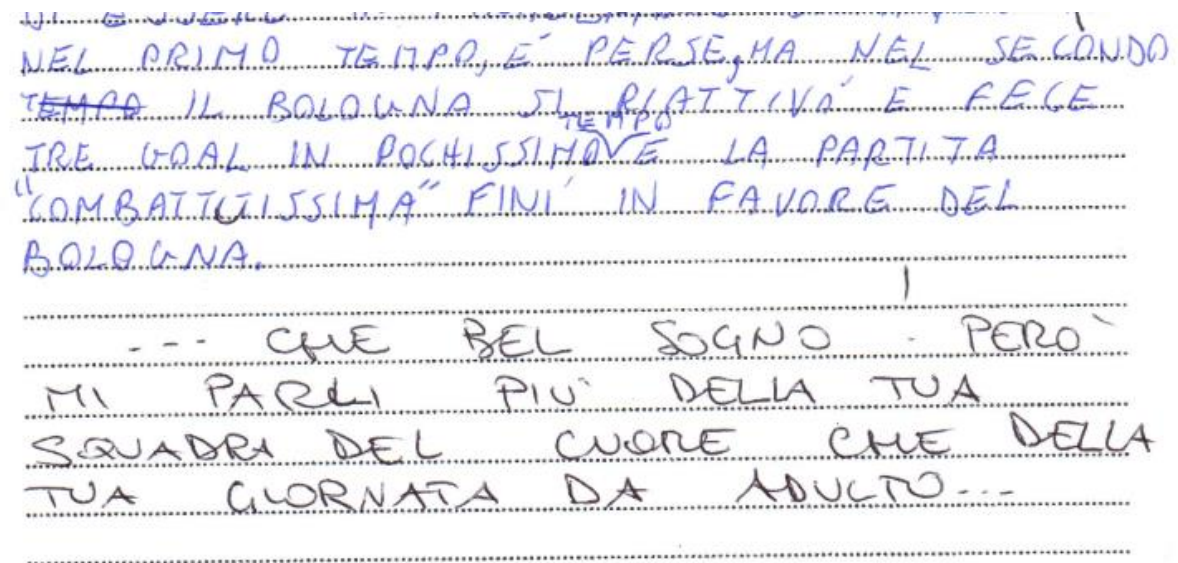 NEL PRIMO TEMPO, E´ PERSE, MA NEL SECONDO
TEMPO IL BOLOGNA SI RIATTIVÓ E FECE
TEMPO
TRE GOAL IN POCHISSIMO E LA PARTITA
"COMBATTUTISSIMA" FINI´ IN FAVORE DEL
BOLOGNA.
--- CHE BEL SOGNO. PERO`
MI PARLI PIU` DELLA TUA
SQUADRA DEL CUORE CHE DELLA
TUA GIORNATA DA ADULTO...